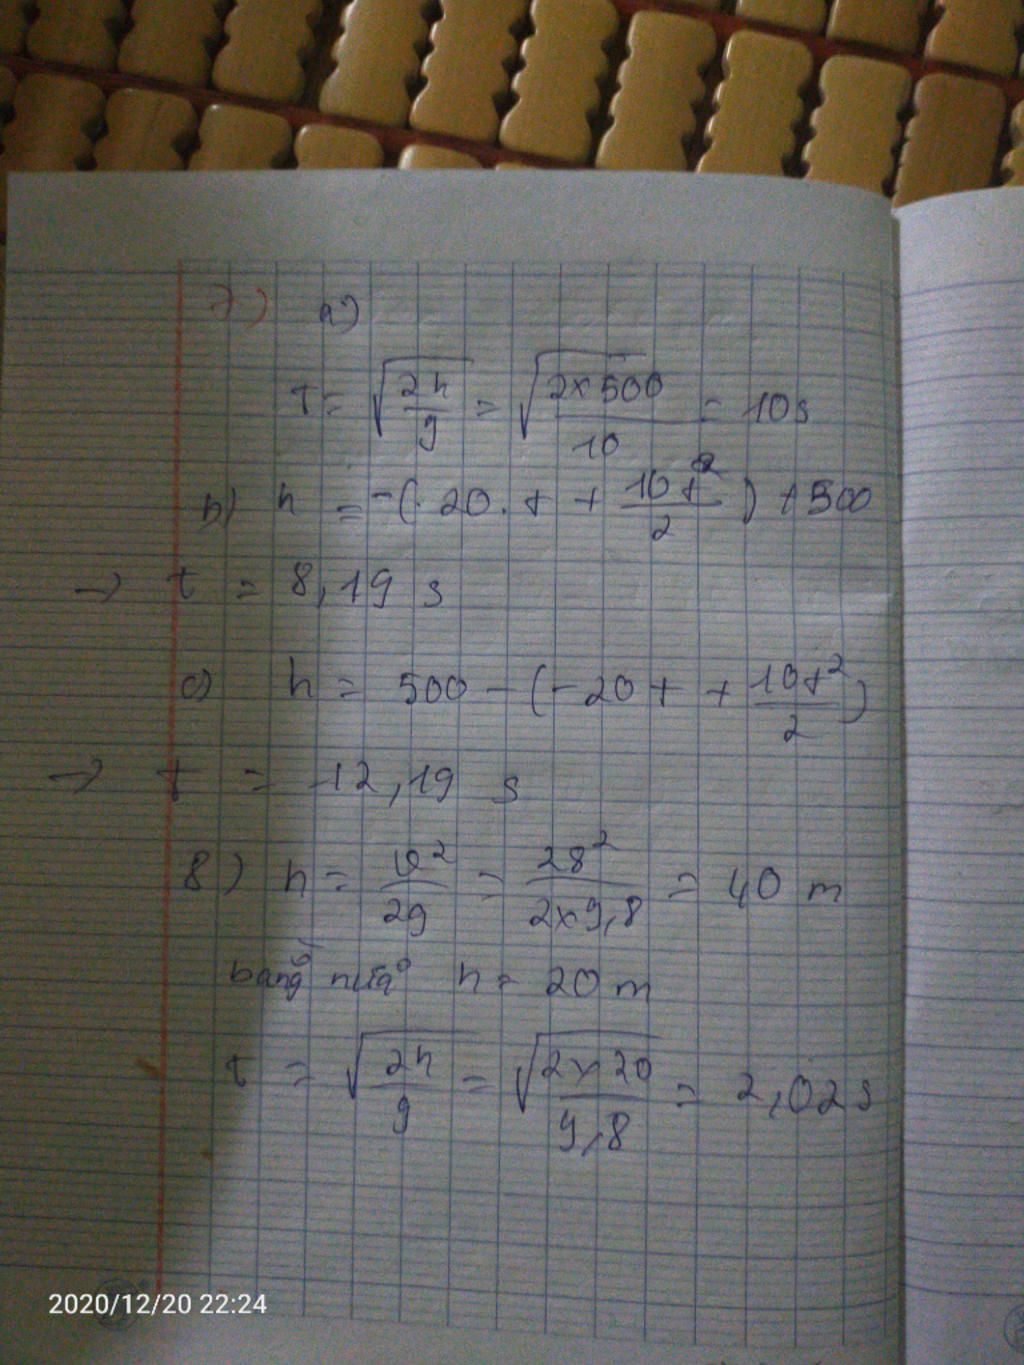 7) a)
T = √(2h/g) = √(2×500/10) = 10s
b) h = -(20.t + 10t²/2) + 500
→ t = 8,19 s
c) h = 500 - (-20t + 10t²/2)
→ t = 12,19 s
8) h = v²/2g = 28²/2×9,8 = 40 m
bằng nửa h = 20 m
t = √(2h/g) = √(2×20/9,8) = 2,02s
2020/12/20 22:24